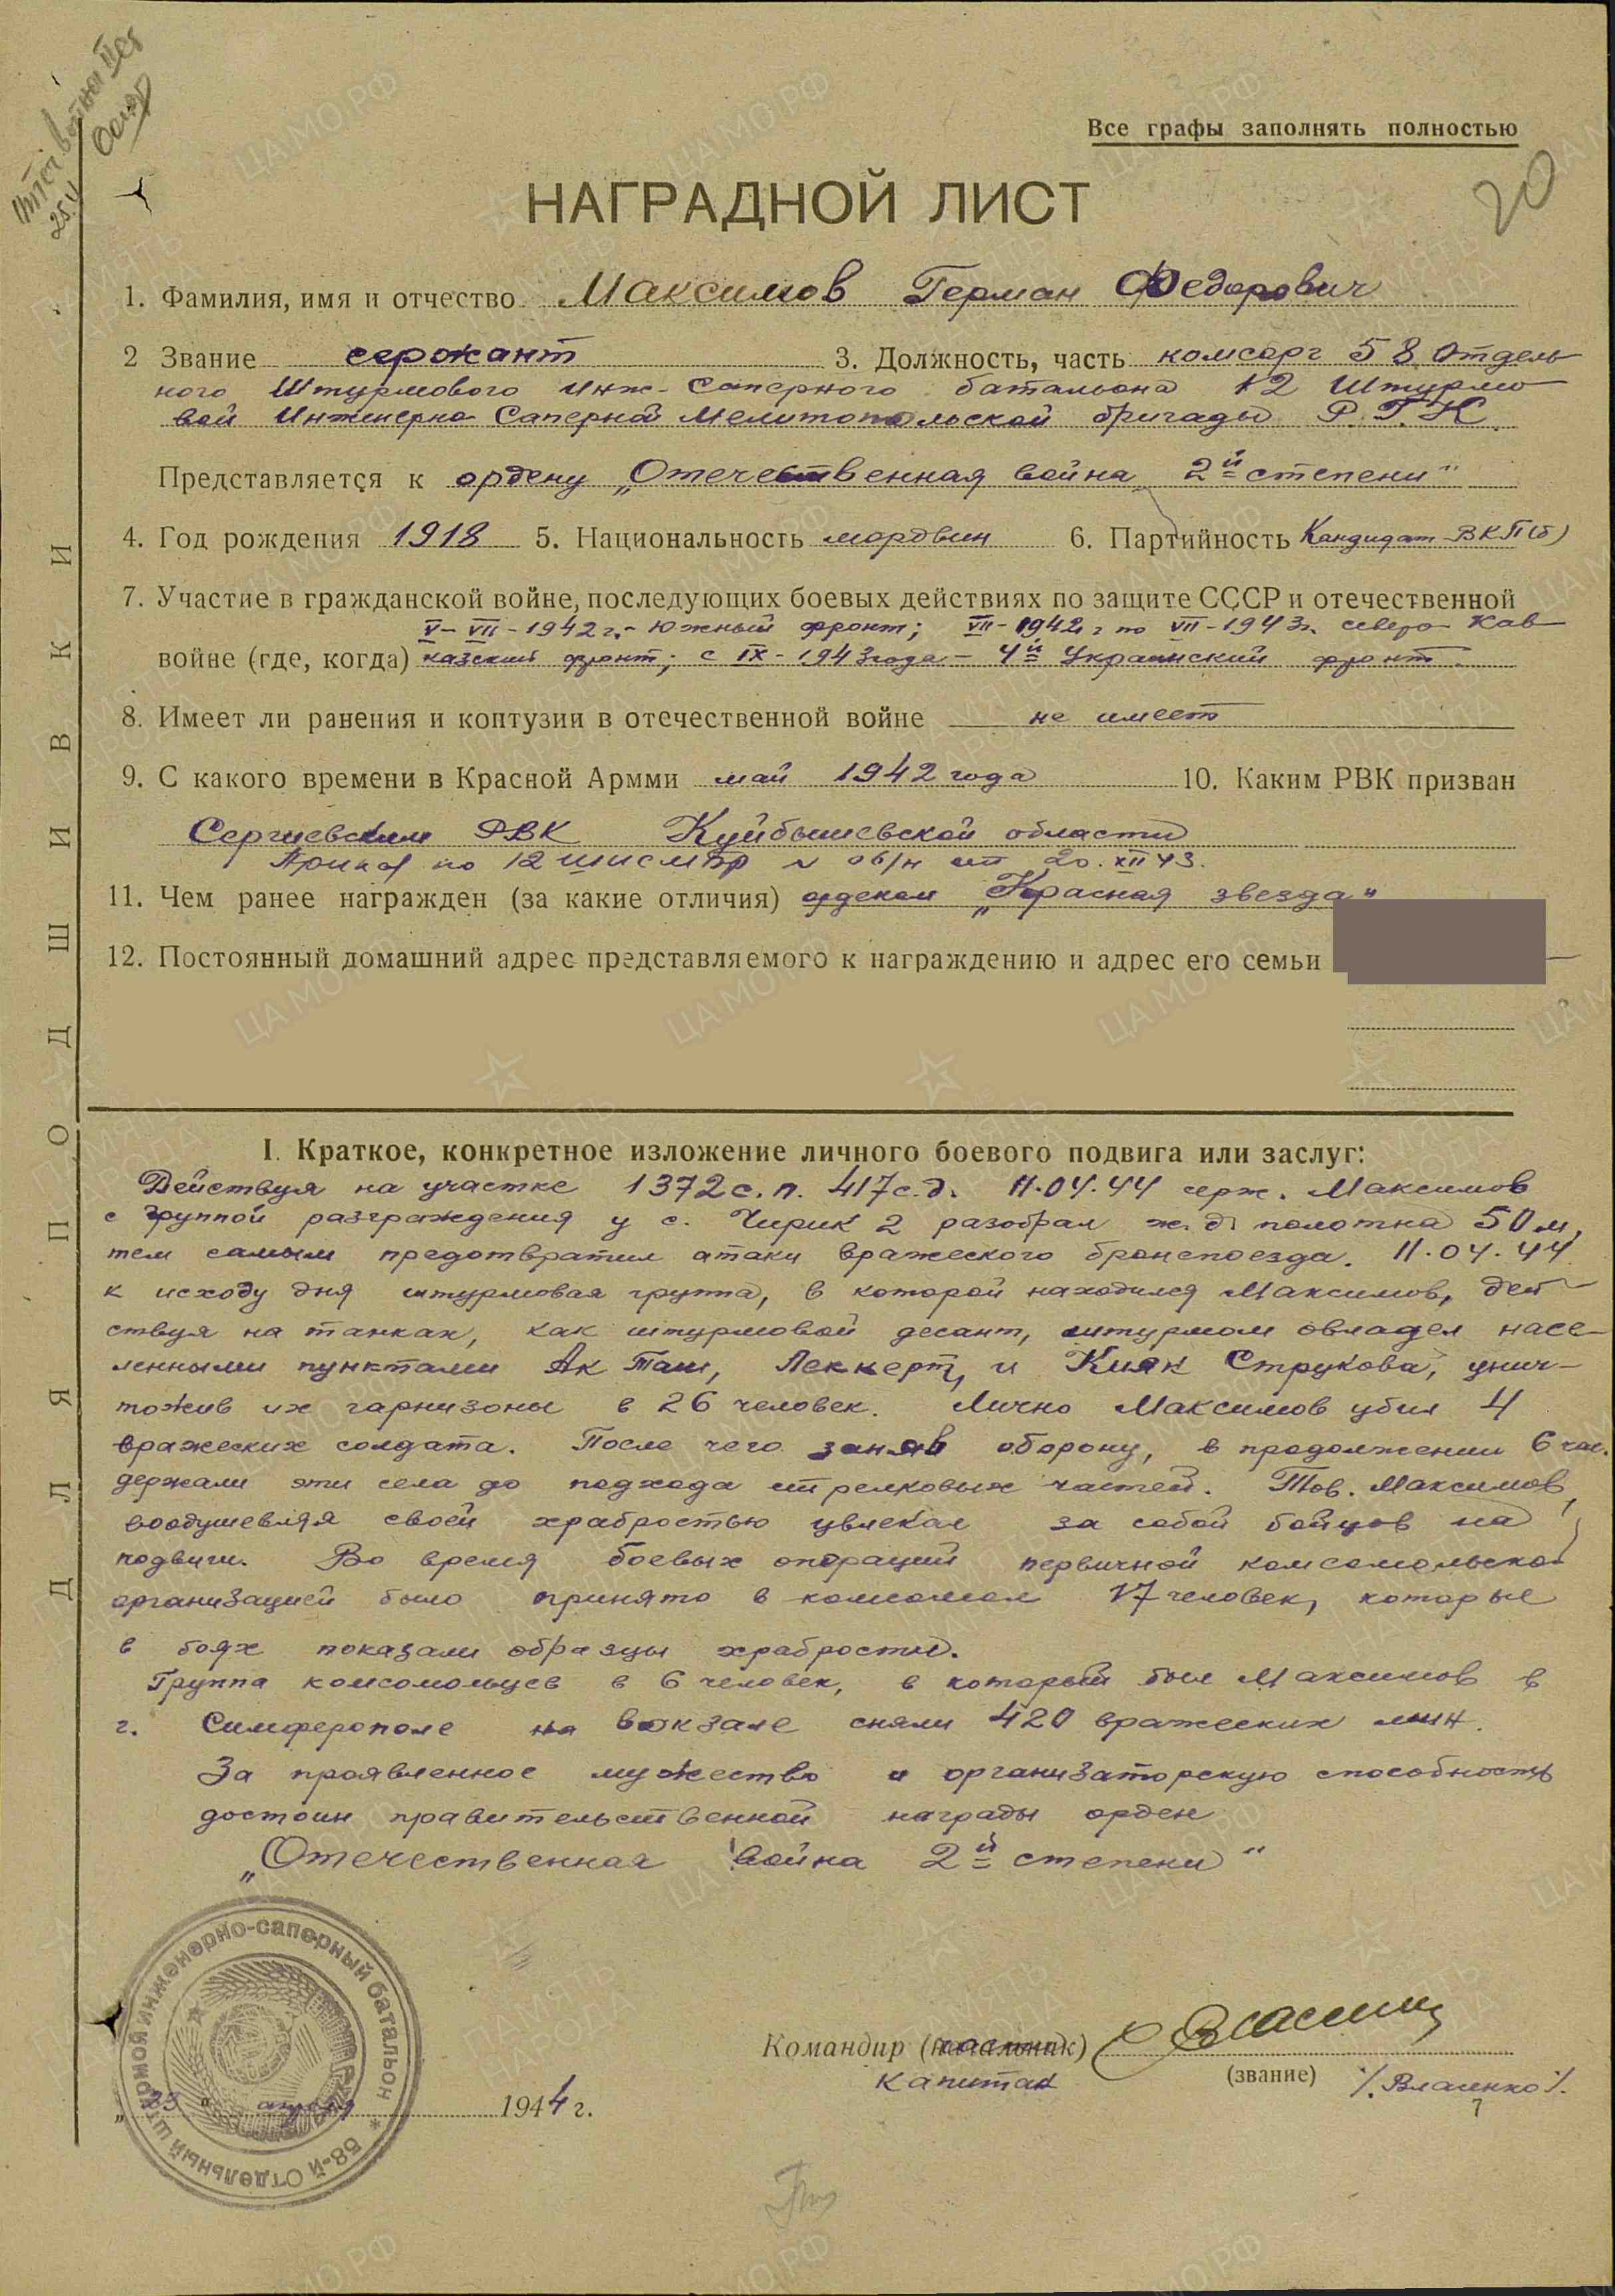 Все графы заполнять полностью
20
НАГРАДНОЙ ЛИСТ
1. Фамилия, имя и отчество Максимов Герман Федорович
2 Звание сержант 3. Должность, часть комсорг 58 Отдель
ного Штурмового инж-Саперного батальона 12 Штурмо
вой Инженерно Саперной Мелитопольской бригады Р.Г.К.
Представляется к ордену „Отечественная война 2й степени"
4. Год рождения 1918 5. Национальность мордвин 6. Партийность Кандидат ВКП(б)
7. Участие в гражданской войне, последующих боевых действиях по защите СССР и отечественной
V-VII-1942 г.- Южный фронт; VII-1942 г по VII-1943г. северо Кав
войне (где, когда) казский фронт; с IX-1943года - 4й Украинский фронт.
8. Имеет ли ранения и контузии в отечественной войне не имеет
9. С какого времени в Красной Армми май 1942 года 10. Каким РВК призван
Сергиевским РВК Куйбышевской области
Приказ по 12 ШИСМБР № об/н от 20.XII 43.
11. Чем ранее награжден (за какие отличия) орденом „Красная звезда"
12. Постоянный домашний адрес представляемого к награждению и адрес его семьи
I. Краткое, конкретное изложение личного боевого подвига или заслуг:
Действуя на участке 1372 с.п. 417 с.д. 11.04.44 серж. Максимов
с группой разграждения у с. Чирик 2 разобрал ж.д полотна 50 м,
тем самым предотвратил атаки вражеского бронепоезда. 11.04.44
к исходу дня штурмовая группа, в которой находился Максимов, дей
ствуя на танках, как штурмовой десант, штурмом овладел насе-
ленными пунктами Ак Таш, Леккерт, и Кияк Струкова, унич-
тожив их гарнизоны в 26 человек. Лично Максимов убил 4
вражеских солдата. После чего заняв оборону, в продолжении 6 час.
держали эти села до подхода стрелковых частей. Тов. Максимов,
воодушевляя своей храбростью увлекал за собой бойцов на
подвиги. Во время боевых операций первичной комсомольской
организацией было принято в комсомол 17 человек, которые
в боях показали образцы храбрости.
Группа комсомольцев в 6 человек, в которой был Максимов в
г. Симферополе на вокзале сняли 420 вражеских мин.
За проявленное мужество и организаторскую способность
достоин правительственной награды орден
„Отечественная война 2й степени"
Командир (начальник)
капитан
(звание) /Власенко/.
„23" апреля 1944 г.
58-й Отдельный штурмовой инженерно-саперный батальон
ДЛЯ ПОДШИВКИ
ЦАМО.РФ
ПАМЯТЬ НАРОДА